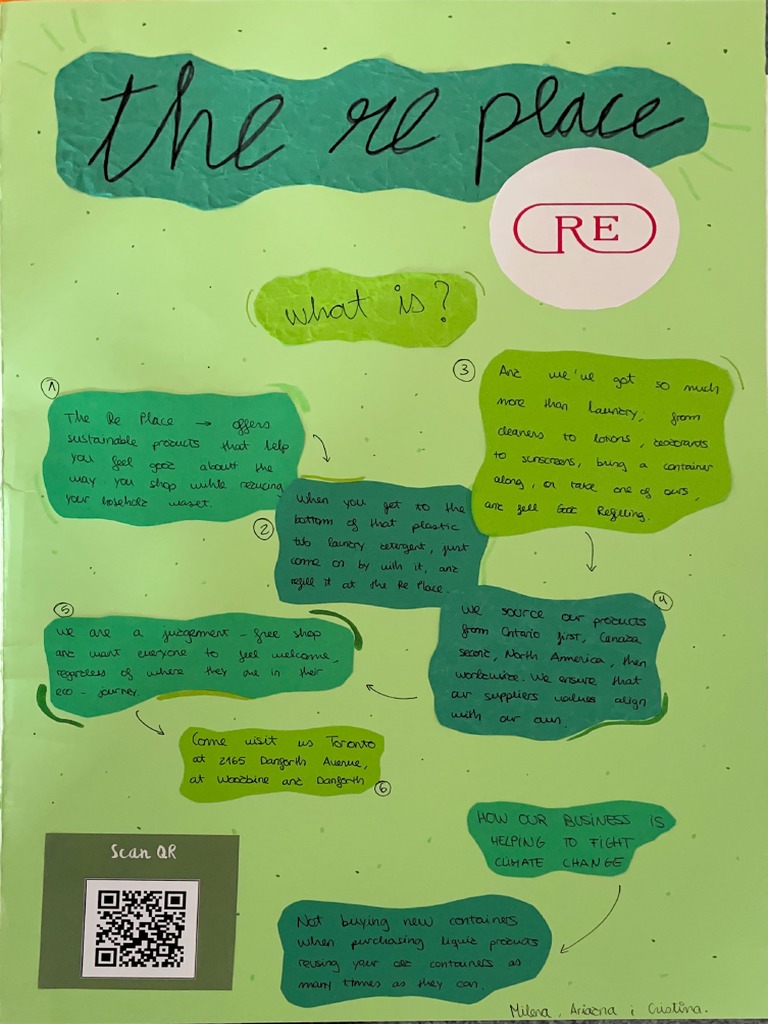 the re place
RE
what is?
1
The Re Place → offers
sustainable products that help
you feel good about the
way you shop while reducing
your hosehold waset.
2
When you get to the
bottom of that plastic
tub laundry detergent, just
come on by with it, and
refill it at the Re Place.
3
And we've got so much
more than laundry, from
cleaners to lotions, deodorants
to sunscreens, bring a container
along, or take one of ours,
and feel Good Refilling.
4
We source our products
from Ontario first, Canada
second, North America, then
worldwide. We ensure that
our suppliers values align
with our own.
5
We are a judgement-free shop
and want everyone to feel welcome,
regardless of where they are in their
eco-journey.
Come visit us Toronto
at 2165 Danforth Avenue,
at Woodbine and Danforth
6
HOW OUR BUSINESS IS
HELPING TO FIGHT
CLIMATE CHANGE
Not buying new containers
when purchasing liquid products
reusing your old containers as
many times as they can.
Scan QR
Milena, Ariadna i Cristina.